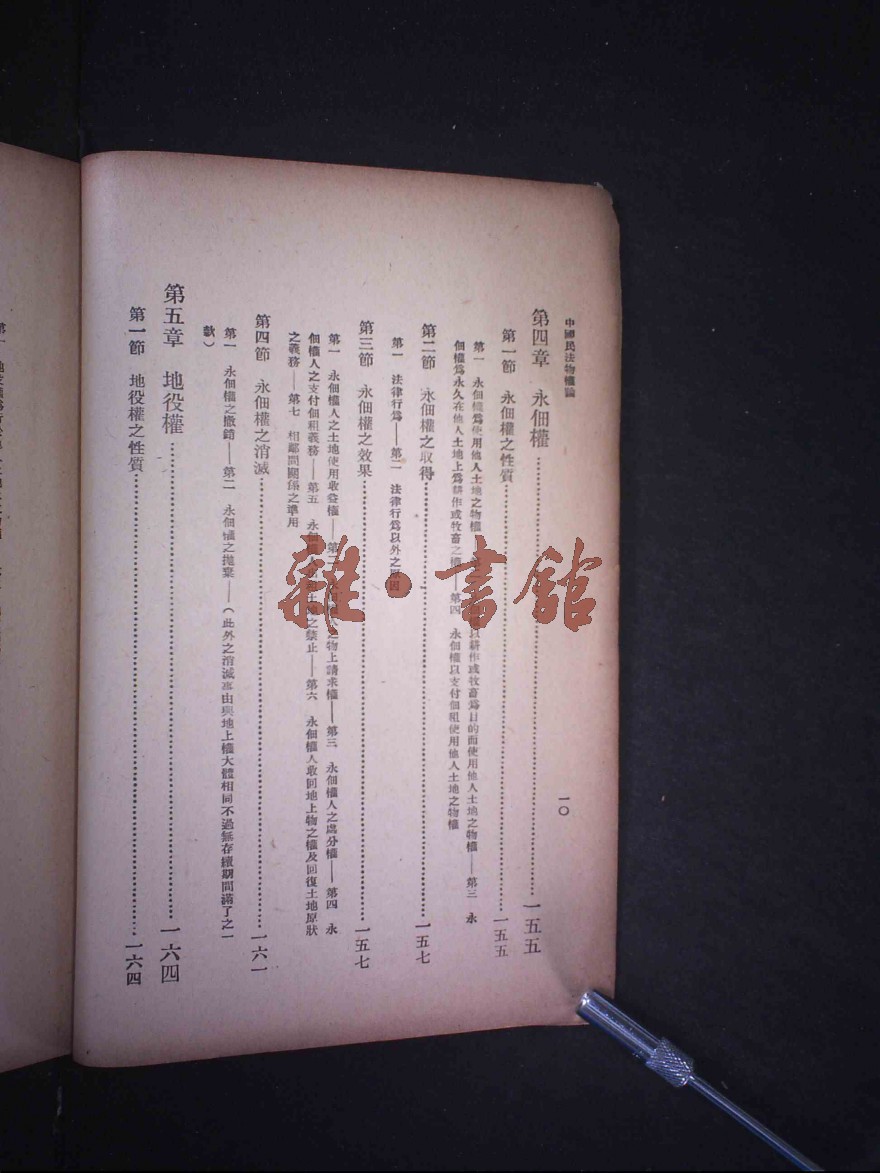 中國民法物權論
一〇
第四章 永佃權 一五五
第一節 永佃權之性質 一五五
第一 永佃權爲使用他人土地之物權——第二 以耕作或牧畜爲目的而使用他人土地之物權——第三 永
佃權爲永久在他人土地上爲耕作或牧畜之權——第四 永佃權以支付佃租使用他人土地之物權
第二節 永佃權之取得 一五七
第一 法律行爲——第二 法律行爲以外之原因
第三節 永佃權之效果 一五七
第一 永佃權人之土地使用收益權——第二 之物上請求權——第三 永佃權人之處分權——第四 永
佃權人之支付佃租義務——第五 永佃 土地之禁止——第六 永佃權人收回地上物之權及回復土地原狀
之義務——第七 相鄰間關係之準用
第四節 永佃權之消滅 一六一
第一 永佃權之撤銷——第二 永佃權之拋棄——(此外之消滅事由與地上權大體相同不過無存續期間滿了之一
款)
第五章 地役權 一六四
第一節 地役權之性質 一六四
雜·書館